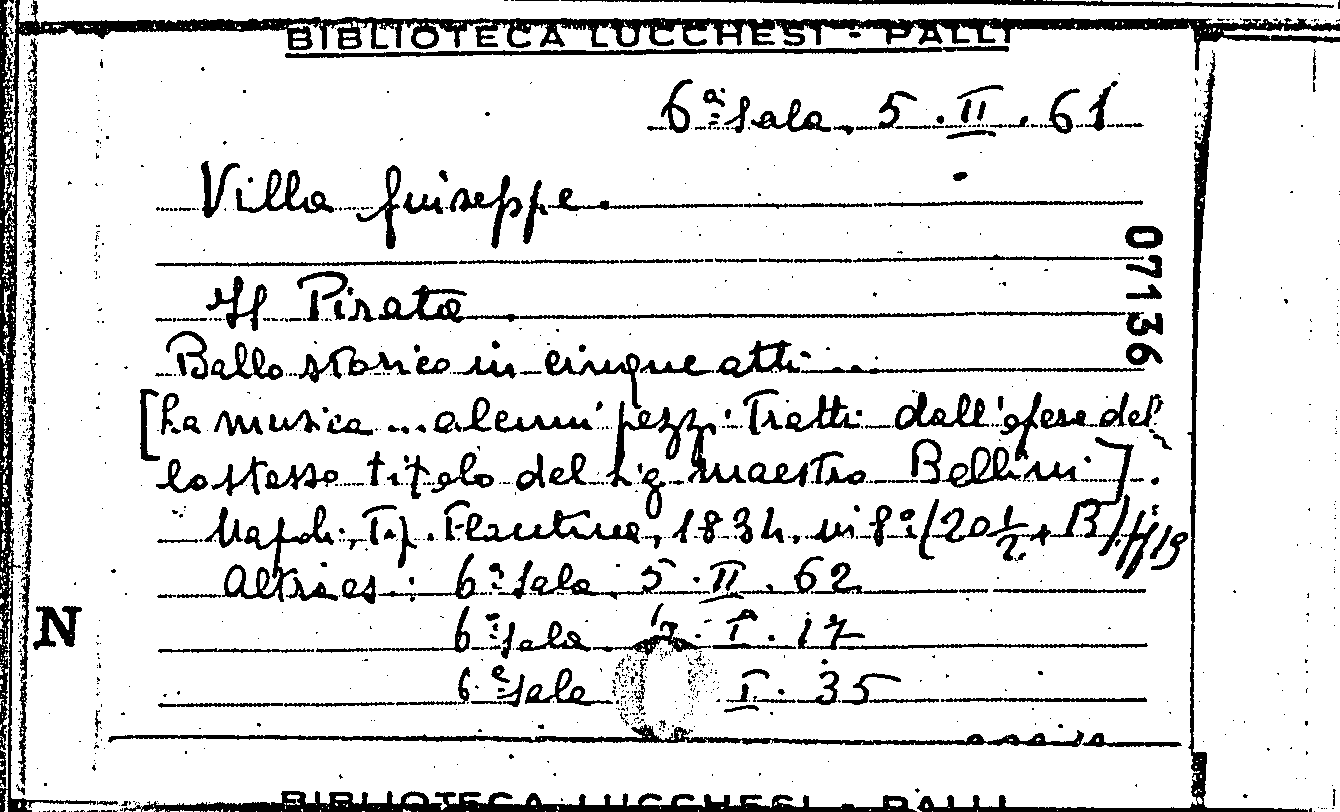 BIBLIOTECA LUCCHESI - PALLI
6ª Sala. 5. II. 61
Villa Giuseppe.
07136
Il Pirata.
Ballo storico in cinque atti....
[La musica ... alcuni pezzi tratti dall'opera del
lo stesso titolo del Sig. maestro Bellini].
Napoli, Tip. Flautina, 1834. in 8º (20½ × 13) pp. 19
Altri es.: 6ª Sala. 5. II. 62
N
6ª Sala. I. 17
6ª Sala I. 35
BIBLIOTECA LUCCHESI - PALLI